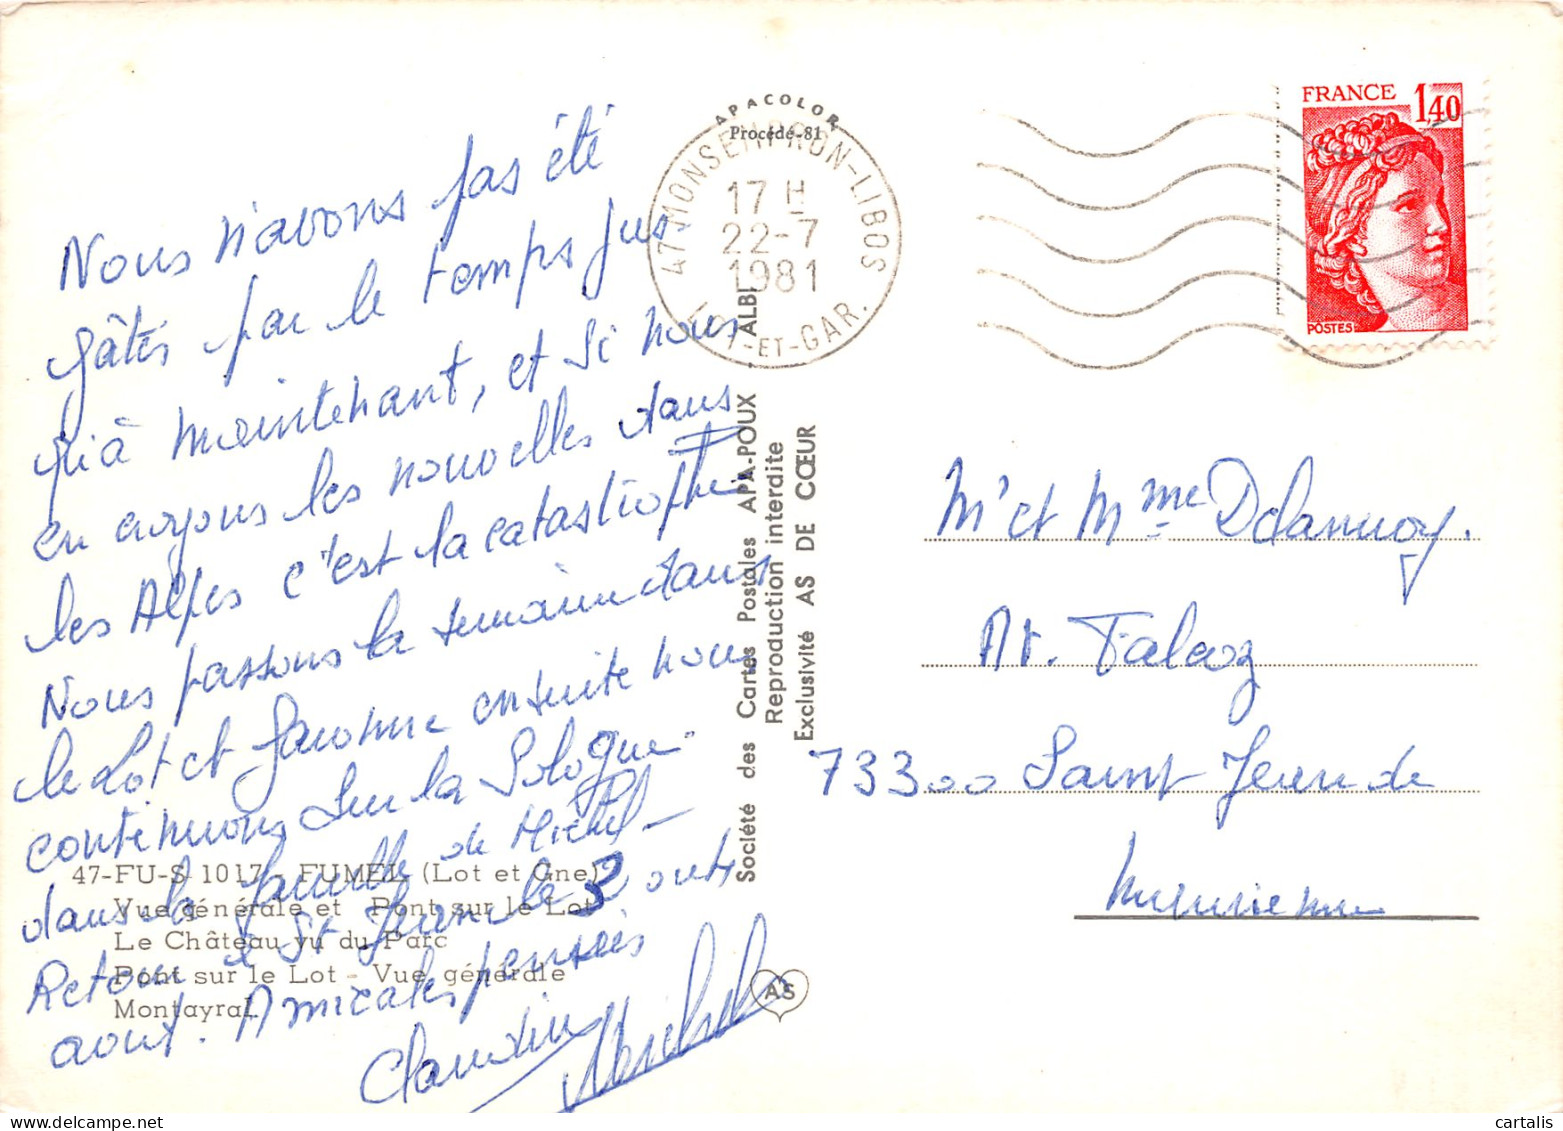 Nous n'avons pas été
gâtés par le temps jus-
qu'à maintenant, et si nous
en croyons les nouvelles dans
les Alpes c'est la catastrophe
Nous passons la semaine dans
le Lot et Garonne ensuite nous
continuons sur la Sologne
dans la famille de Michel -
Retour à St Jean le 3 août
août. Amicales pensées
Claudine Michel
47-FU-S 1017 - FUMEL (Lot et Gne)
Vue générale et Pont sur le Lot
Le Château vu du Parc
Pont sur le Lot - Vue générale
Montayral
APACOLOR
Procédé-81
47 MONSEMPRON-LIBOS
17 H
22-7
1981
LOT-ET-GAR.
Société des Cartes Postales APA-POUX - ALBI
Reproduction interdite
Exclusivité AS DE CŒUR
AS
FRANCE 1,40
POSTES
Mr et Mme Delannoy.
Av. Falcoz
73300 Saint Jean de
Maurienne
cartalis